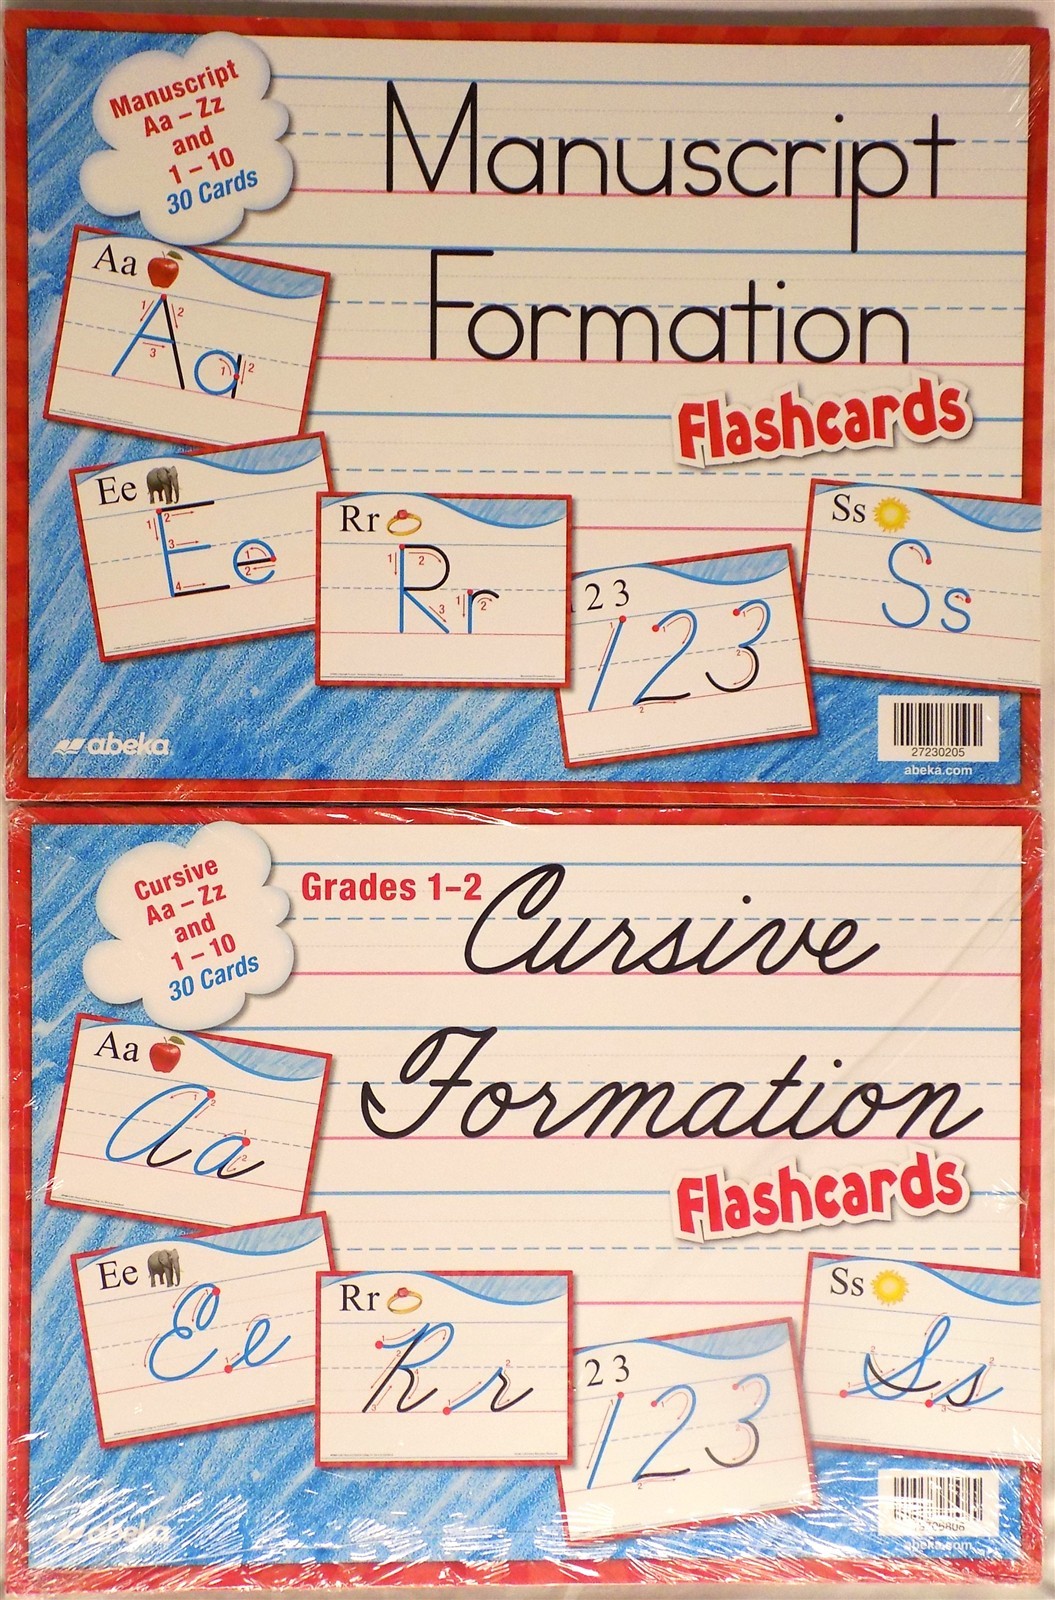 Manuscript
Aa – Zz
and
1 – 10
30 Cards
Manuscript
Formation
Flashcards
Aa
1 2 3
A a
1 2
Ee
1 2 3 4
E e
1 2
Rr
1 2 3
R r
1 2
2 3
1 2 3
1
2
Ss
S s
abeka
27230205
abeka.com
Cursive
Aa – Zz
and
1 – 10
30 Cards
Grades 1–2
Cursive
Formation
Flashcards
Aa
A a
Ee
E e
Rr
R r
2 3
1 2 3
Ss
S s
abeka
abeka.com